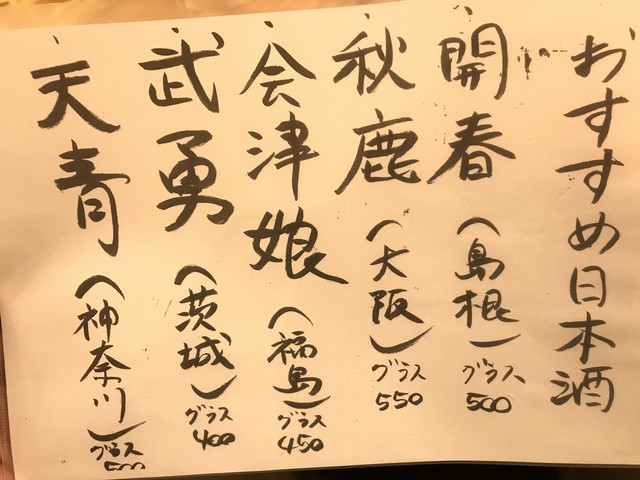 おすすめ日本酒
開春(島根)グラス500
秋鹿(大阪)グラス550
会津娘(福島)グラス450
武勇(茨城)グラス400
天青(神奈川)グラス500